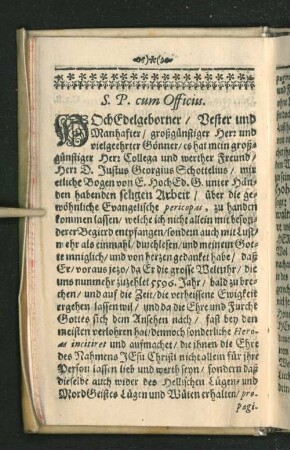 S. P. cum Officiis.
HOchEdelgeborner / Vester und
Manhafter / großgünstiger Herr und
vielgeehrter Gönner / es hat mein groß-
günstiger Herr Collega und werther Freund /
Herr D. Justus Georgius Schottelius / mir
etliche Bogen von E. HochEd. G. unter Hän-
den habenden seligen Arbeit / über die ge-
wöhnliche Evangelische pericopas, zu handen
kommen lassen / welche ich nicht allein mit beson-
derer Begierd empfangen / sondern auch mit Lust /
mehr als einmahl / durchlesen / und meinem Got-
te inniglich / und von herzen gedanket habe / daß
Er / voraus jezo / da Er die grosse Weltuhr / die
uns nunmehr zuzehlet 5596. Jahr / bald zu bre-
chen / und auf die Zeit / die verheissene Ewigkeit
ergehen lassen wil / und da die Ehre und Furcht
Gottes sich dem Ansehen nach / fast bey den
meisten verlohren hat / dennoch sonderliche Hero-
as incitiret und aufmachet / die ihnen die Ehre
des Nahmens JEsu Christi nicht allein für ihre
Person lassen lieb und werth seyn / sondern daß
dieselbe auch wider des Hellischen Lügen- und
MordGeistes Lügen und Wüten erhalten / pro-
pagi-